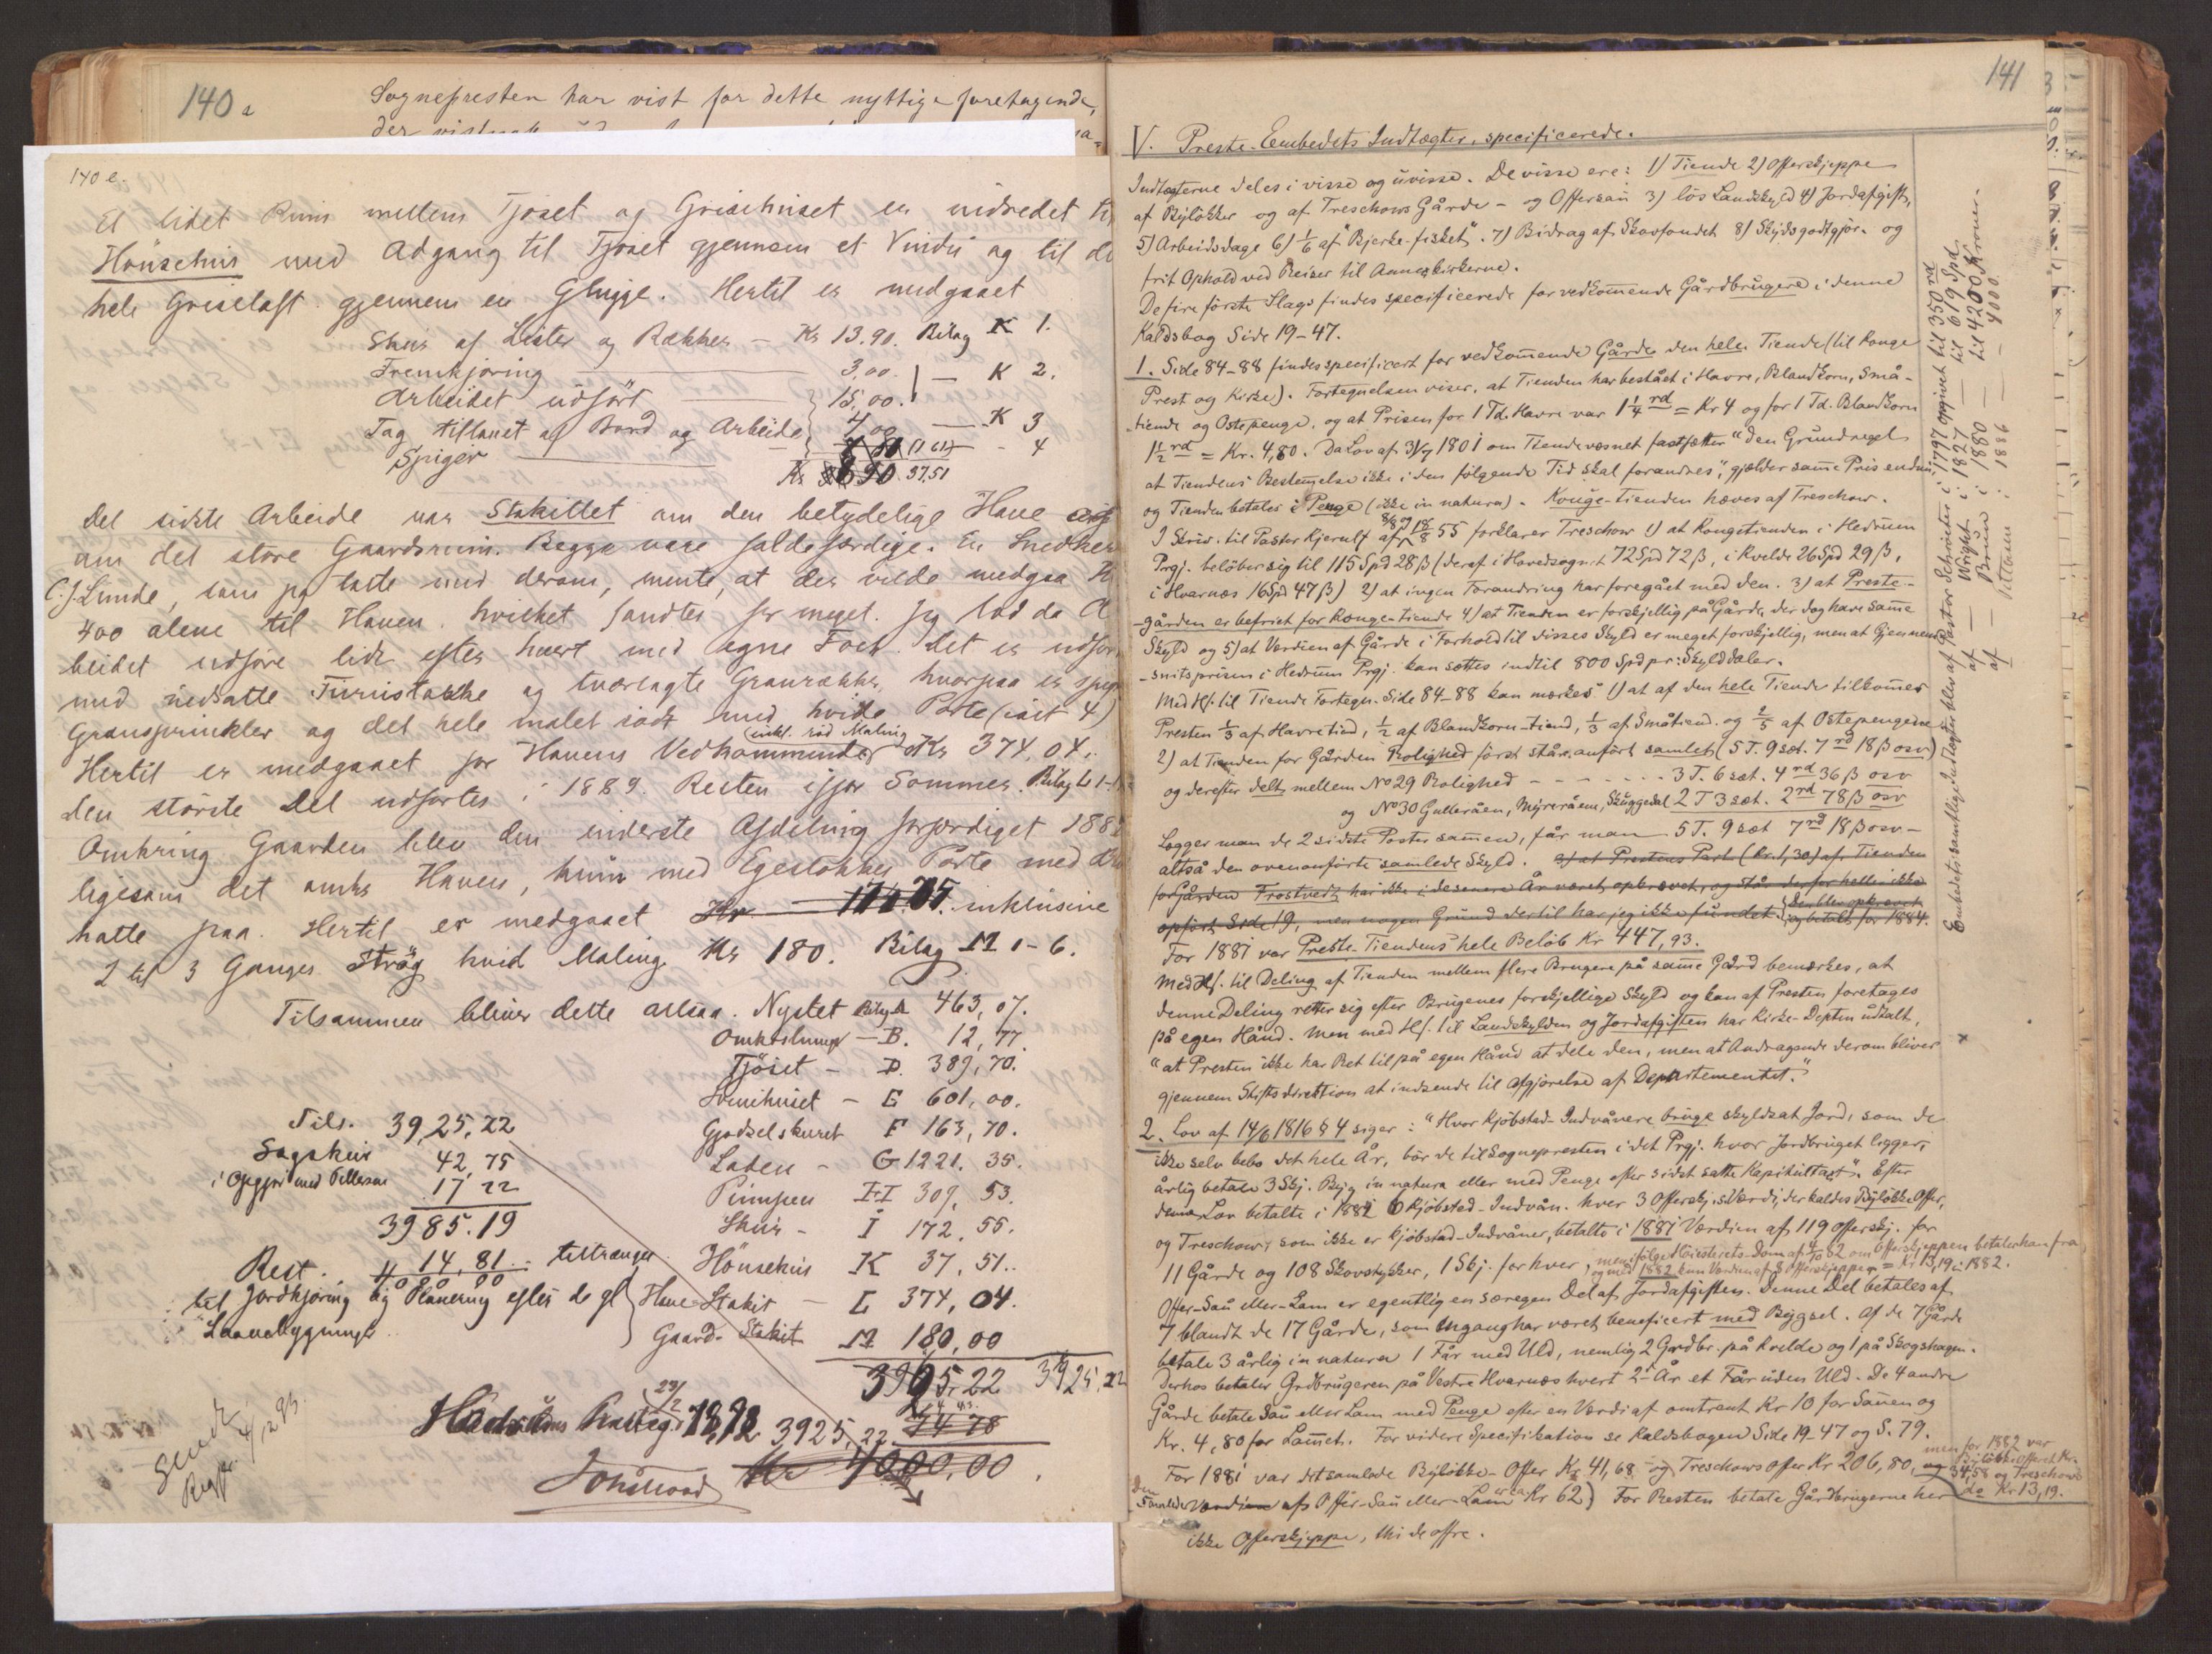 140 a
Sognepresten har vist for dette nyttige foretagende,
140 e.
Et lidet Rum mellem Fjøset og Grisehuset er indredet til
Hönsehus med Adgang til Fjøset gjennem et Vindu og til de
hele Griseloft gjennem en Glugge. Hertil er medgaaet
Skur af Lister og Rækker — Kr 13.90. Bilag K 1.
Fremkjøring — 3,00. — K 2.
Arbeidet udfört — 15,00.
Tag tillavet af Bord og Arbeide 4,00 — K 3
Spiger — 4
37,51
Det sidste Arbeide var Stakittet om den betydelige Have
om det store Gaardsrum. Begge vare faldefærdige. En Snedker
C. J. Lunde, som paatatte med derom, mente, at der vilde medgaa
400 alene til Haven, hvilket fandtes for meget. Jeg lod da A
beidet udføre lidt efter hvert med egne Folk. Det er udfør
med nedsatte Furustokke og tværlagte Granrækker, hvorpaa er
Gransprinkler og det hele malet rödt med hvide Porte (i alt 4)
(inkl. rød Maling)
Hertil er medgaaet for Havens Vedkommende Kr 374,04.
den störste Del udførtes i 1889. Resten ifjor Sommer. Bilag L 1-
Omkring Gaarden blev den inderste Afdeling forfærdiget 188
ligesom det omkr Haven, kun med Egestokker Porte med
hatte paa. Hertil er medgaaet Kr inklusive
2 til 3 Ganges Strög hvid Maling. Kr 180. Bilag M 1-6.
Tilsammen bliver dette altsaa. Nystet Bilag A 463,07.
— B. 12,77.
Fjöset — D. 389,70.
Svinehuset — E 601,00.
Gjødselskuret F 163,70.
Laden — G 1221.35.
Pumpen H 309,53.
Skur — I 172,55.
Hönsehus K 37,51.
Have Stakit — L 374,04.
Gaard. Stakit M 180,00
3925,22 3925,22
Tils. 39,25,22
Sagskur 42,75
i Opgjør med Pettersen 17 22
3985.19
Rest. 14,81 tiltrænges
4000 00
til Jordkjøring og Planering efter de gl
Laanebygninger.
23/2
1892
3925,22
74 78
Kr 4000,00
Sendt
4/12 93.
141
V. Preste-Embedets Indtægter, specificerede.
Indtægterne deles i visse og uvisse. De visse ere: 1) Tiende 2) Offerskjeppe
af Byløkker og af Treschows Gårde – og Offersau 3) lös Landskyld 4) Jordafgift,
5) Arbeidsdage 6) 1/6 af "Bjerke-fisket". 7) Bidrag af Skovfondet 8) Skydsgodtgjør. og
frit Ophold ved Reiser til Annexkirkerne.
De fire förste Slags findes specificerede for vedkommende Gårdbrugere i denne
Kaldsbog Side 19–47.
1. Side 84–88 findes specificert for vedkommende Gårde den hele Tiende (til Konge
Prest og Kirke). Fortegnelsen viser, at Tienden har bestået i Havre, Blandkorn, Små-
-tiende og Ostepenge, og at Prisen for 1 Td. Havre var 1 1/4 rd = Kr 4 og for 1 Td. Blandkorn
1 1/2 rd = Kr. 4,80. Da Lov af 31/7 1801 om Tiendevæsnet fastsætter "den Grundregel
at Tiendens Bestemmelse ikke i den følgende Tid skal forandres", gjælder samme Pris endnu,
og Tienden betales i Penge (ikke in natura). Konge-Tienden hæves af Treschow.
I Skriv. til Pastor Kjerulf af 8/8 og 18/8 55 forklarer Treschow 1) at Kongetienden i Hedrum
Prgj. beløber sig til 115 Spd 28 β (deraf i Hovedsognet 72 Spd 72 β, i Kvelde 26 Spd 29 β,
i Hvarnæs 16 Spd 47 β) 2) at ingen Forandring har foregået med den. 3) at Preste-
-gården er befriet for Konge-tiende 4) at Tienden er forskjellig på Gårde, der dog have samme
Skyld og 5) at Værdien af Gårde i Forhold til disses Skyld er meget forskjellig, men at Gjennem-
-snitsprisen i Hedrum Prgj. kan sættes indtil 800 Spd pr: Skylddaler.
Med Hs. til Tiende Fortegn. Side 84–88 kan mærkes 1) at af den hele Tiende tilkommer
Presten 1/3 af Havretiend, 1/2 af Blandkorn-tiend, 1/3 af Småtiend. og 2/5 af Ostepengene
2) at Tienden for Gården Rolighed först står anfört samlet (5 T. 9 sæt. 7 rd 18 β osv)
og derefter delt mellem No 29 Rolighed - - - - - - - 3 T. 6 sæt. 4 rd 36 β osv
og No 30 Gulleråen, Myreråen, Skuggedal 2 T 3 sæt. 2 rd 78 β osv
Lægger man de 2 sidste Poster sammen, får man 5 T. 9 sæt 7 rd 18 β osv –
altså den ovenanförte samlede Skyld. 3) at Prestens Part (Kr. 1,30) af Tienden
for Gården Frostvedt har ikke i de senere År været opkrævet, og står derfor heller ikke
opført Side 19, men nogen Grund dertil har jeg ikke fundet. Den blev opkrævet
og betalt for 1884.
For 1881 var Preste-Tiendens hele Beløb Kr 447,93.
Med Hs. til Deling af Tienden mellem flere Brugere på samme Gård bemærkes, at
denne Deling retter sig efter Brugenes forskjellige Skyld og kan af Presten foretages
på egen Hånd. Men med Hs. til Landskylden og Jordafgiften har Kirke-Depten udtalt,
"at Presten ikke har Ret til på egen Hånd at dele den, men at Andragende derom bliver
gjennem Stiftsdirektion at indsende til Afgjørelse af Departementet."
2. Lov af 14/6 1816 § 4 siger: "Hvor Kjöbstad-Indvånere bruge skyldsat Jord, som de
ikke selv bebo det hele År, bör de til Sognepresten i det Prgj. hvor Jordbruget ligger,
årlig betale 3 Skj. Byg in natura eller med Penge efter sidst satte Kapitultaxt". Efter
denne Lov betalte i 1882 6 Kjöbstad-Indvån. hver 3 Offerskj.s Værdi, der kaldes Byløkke Offer,
og Treschow, som ikke er Kjöbstad-Indvåner, betalte i 1881 Værdien af 119 Offerskj. for
11 Gårde og 108 Skovstykker, 1 Skj. for hver, men ifölge Höiesterets-Dom af 4/10 82 om Offerskjeppen betaler han fra
og med 1882 kun Værdien af 8 Offerskjepper = Kr 13,19 i 1882.
Offer-Sau eller-Lam er egentlig en særegen Del af Jordafgiften. Denne Del betales af
7 blandt de 17 Gårde, som engang har været beneficert med Bygsel. Af de 7 Gårde
betale 3 årlig in natura 1 Får med Uld, nemlig 2 Grdbr. på Kvelde og 1 på Skogshagen.
Derhos betaler Grdbrugeren på Vestre Hvarnæs hvert 2det År et Får uden Uld. De 4 andre
Gårde betale Sau eller Lam med Penge efter en Værdi af omtrent Kr 10 for Sauen og
Kr. 4,80 for Lammet. For videre Specifikation se Kaldsbogen Side 19–47 og S. 79.
For 1881 var det samlede Byløkke-Offer Kr 41,68 og Treschows Offer Kr 206,80, men for 1882 var
Byløkke Offeret Kr.
34,58 og Treschows
do Kr 13,19.
den samlede Værdi af Offer-Sau eller-Lam ca Kr 62) For Resten betale Gårdbrugerne her
ikke Offerskjeppe, thi de offre.
Embedets samtlige Indtægter blev af Pastor Schrøter i 1797 opgivet til 350 rd
af — Wright i 1827 — til 619 Spd.
af — Bruun i 1880 — til 4200 Kroner.
af — Pettersen i 1886 — - 4000.